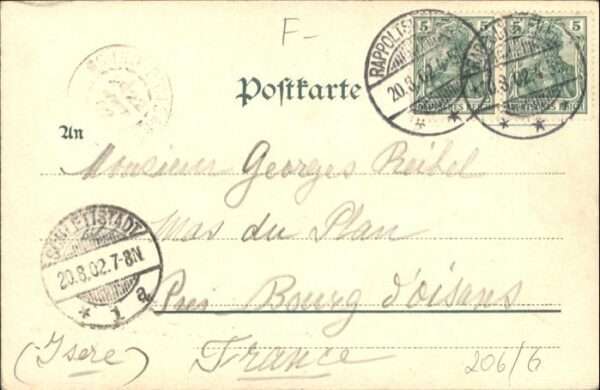 F-
5 5 5
RAPPOLTS
20.8.02.4-5
DEUTSCHES REICH
Postkarte
An
Monsieur Georges Reibel
Mas du Plan
SCHLETTSTADT
20.8.02.7-8N.
* 1 a
Près Bourg d'oisans
(Isere) France
206/6